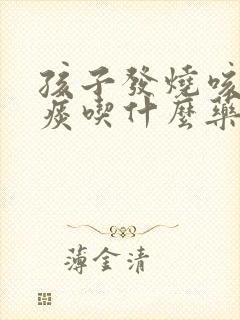 孩子發燒咳
痰喫什麼藥
薄金清